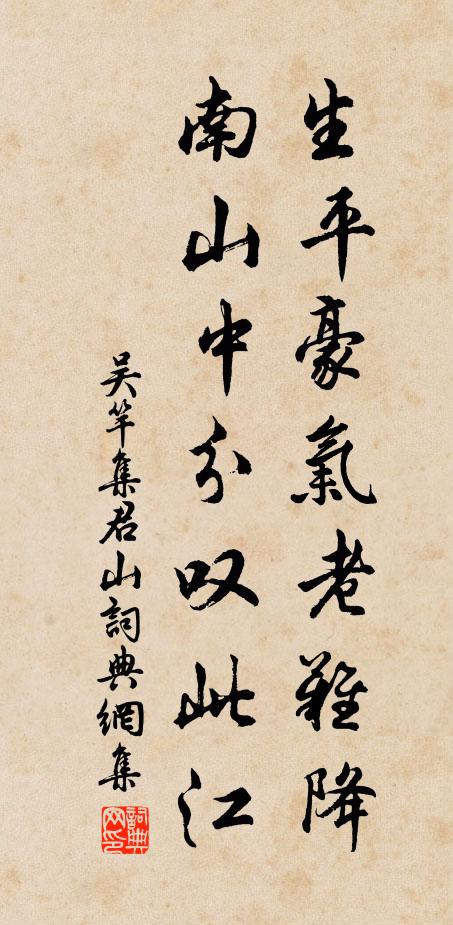 生平豪氣老難降
南山中分叹此江
吴竿集君山詞典網集
詞典网印